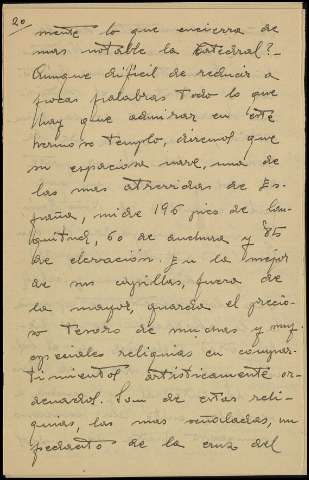 20
mente lo que encierra de
mas notable la catedral?-
Aunque dificil de reducir a
pocas palabras todo lo que
hay que admirar en este
hermoso templo, diremos que
su espaciosa nave, una de
las mas atrevidas de Es-
paña, mide 196 pies de lon-
guitud, 60 de anchura y 85
de elevación. En la mejor
de sus capillas, fuera de
la mayor, guarda el precio-
so tesoro de muchas y muy
especiales reliquias en compar-
timientos artisticamente or-
denados. Son de estas reli-
quias, las mas señaladas, un
pedacito de la cruz del